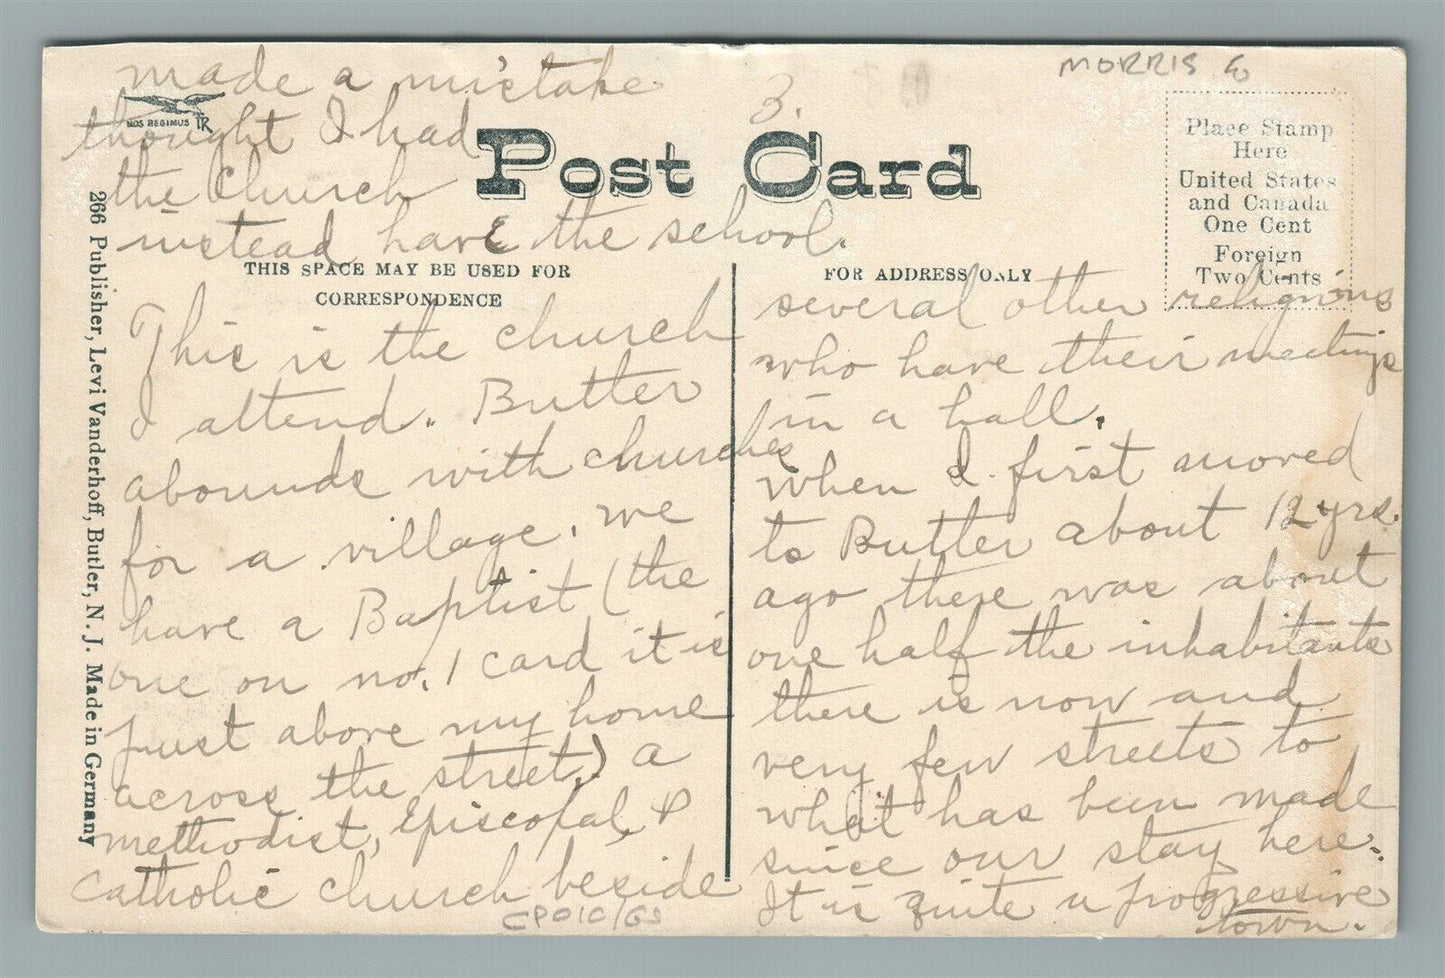 made a mistake
thought I had
the church
instead have the school.
3.
MORRIS
NOS REGIMUS
Post Card
Place Stamp
Here
United States
and Canada
One Cent
Foreign
Two Cents
THIS SPACE MAY BE USED FOR
CORRESPONDENCE
FOR ADDRESS ONLY
266 Publisher, Levi Vanderhoff, Butler, N. J. Made in Germany
This is the church
I attend. Butler
abounds with churches
for a village. we
have a Baptist (the
one on no. 1 card it is
just above my home
across the street,) a
methodist, Episcopal, &
Catholic church beside
several other religions
who have their meetings
in a hall.
when I first moved
to Butler about 12 yrs.
ago there was about
one half the inhabitants
there is now and
very few streets to
what has been made
since our stay here.
It is quite a progressive
town.
CP010/GS